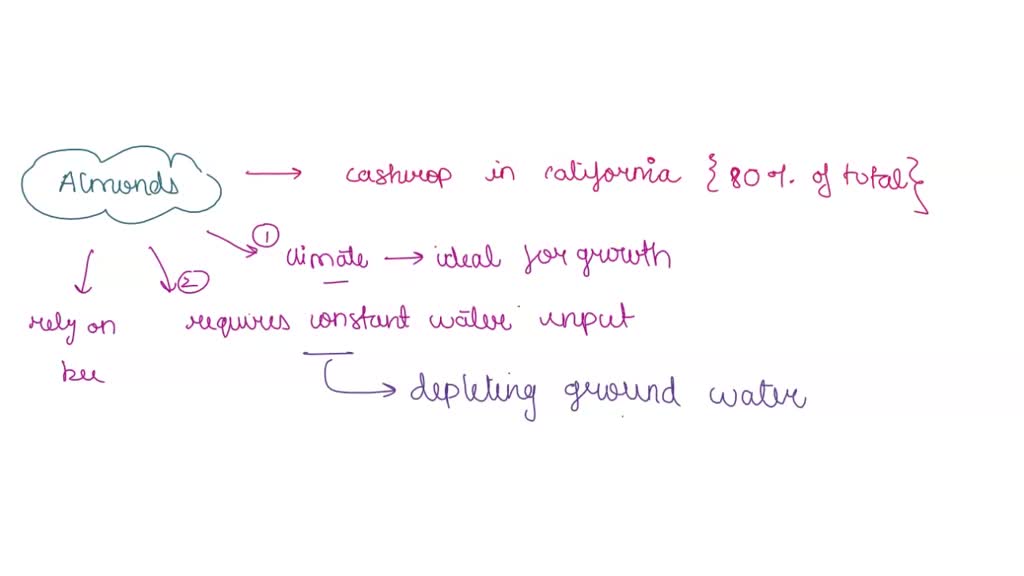 Almonds → cashcrop in california {80% of total}
① climate → ideal for growth
② requires constant water input
rely on
bee
depleting ground water